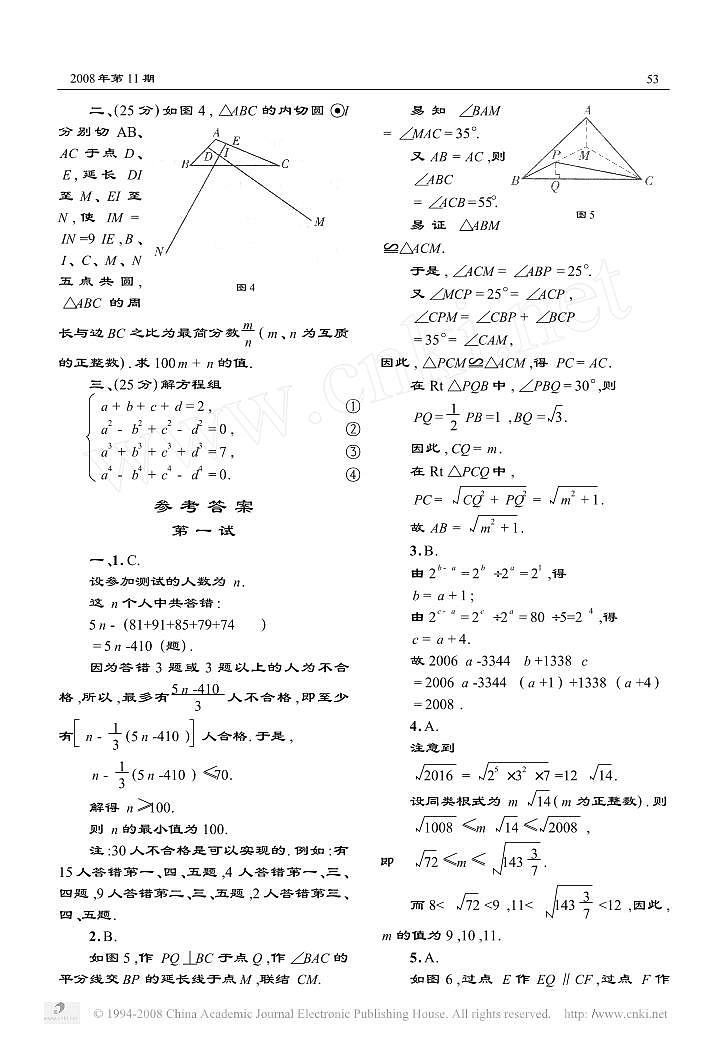 2008 年第 11 期
53
二、(25 分) 如图 4 , △ABC 的内切圆 ⊙I
分别切 AB、
AC 于点 D、
E , 延长 DI
至 M、EI 至
N , 使 IM =
IN =9 IE , B、
I、C、M、N
五点共圆 ,
△ABC 的周
A
E
D
I
B
C
M
N
图 4
长与边 BC 之比为最简分数 m/n ( m、n 为互质
的正整数) . 求 100 m + n 的值.
三、(25 分) 解方程组
a + b + c + d = 2 , ①
a² - b² + c² - d² = 0 , ②
a³ + b³ + c³ + d³ = 7 , ③
a⁴ - b⁴ + c⁴ - d⁴ = 0. ④
参考答案
第一试
一、1. C.
设参加测试的人数为 n.
这 n 个人中共答错 :
5 n - (81+91+85+79+74 )
= 5 n -410 (题) .
因为答错 3 题或 3 题以上的人为不合
格 ,所以 ,最多有 (5 n -410)/3 人不合格 ,即至少
有 [ n - 1/3 (5 n -410 ) ] 人合格. 于是 ,
n - 1/3 (5 n -410 ) ≤70.
解得 n ≥100.
则 n 的最小值为 100.
注 :30 人不合格是可以实现的. 例如 :有
15 人答错第一、四、五题 ,4 人答错第一、三、
四题 ,9 人答错第二、三、五题 ,2 人答错第三、
四、五题.
2. B.
如图 5 ,作 PQ ⊥BC 于点 Q ,作 ∠BAC 的
平分线交 BP 的延长线于点 M ,联结 CM.
易知 ∠BAM
= ∠MAC = 35°.
又 AB = AC ,则
∠ABC
= ∠ACB =55°.
易证 △ABM
≌△ACM.
A
P
M
B
Q
C
图 5
于是 , ∠ACM = ∠ABP = 25°.
又 ∠MCP = 25° = ∠ACP ,
∠CPM = ∠CBP + ∠BCP
= 35° = ∠CAM ,
因此 , △PCM ≌△ACM ,得 PC = AC.
在 Rt △PQB 中 , ∠PBQ = 30° ,则
PQ = 1/2 PB =1 , BQ = √3.
因此 , CQ = m.
在 Rt △PCQ 中 ,
PC = √(CQ² + PQ²) = √(m² + 1).
故 AB = √(m² + 1).
3. B.
由 2^(b- a) = 2^b ÷2^a = 2^1 ,得
b = a + 1 ;
由 2^(c- a) = 2^c ÷2^a = 80 ÷5=2^4 ,得
c = a + 4.
故 2006 a -3344 b +1338 c
= 2006 a -3344 ( a +1 ) +1338 ( a +4 )
= 2008 .
4. A.
注意到
√2016 = √(2⁵ ×3² ×7) =12 √14.
设同类根式为 m √14 ( m 为正整数) . 则
√1008 ≤m √14 ≤√2008 ,
即 √72 ≤m ≤ √(143 3/7) .
而 8< √72 <9 ,11< √(143 3/7) <12 ,因此 ,
m 的值为 9 ,10 ,11.
5. A.
如图 6 ,过点 E 作 EQ ∥ CF ,过点 F 作
www.cnki.net
© 1994-2008 China Academic Journal Electronic Publishing House. All rights reserved. http://www.cnki.net